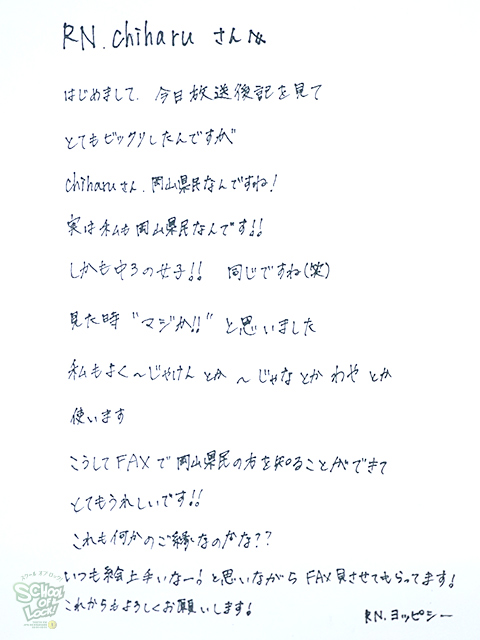 RN. chiharu さんへ
はじめまして、今日放送後記を見て
とてもビックリしたんですが
chiharuさん、岡山県民なんですね!
実は私も岡山県民なんです!!
しかも中3の女子!! 同じですね(笑)
見た時 "マジか!!" と思いました
私もよく〜じゃけん とか 〜じゃな とか わや とか
使います
こうしてFAXで岡山県民の方を知ることができて
とてもうれしいです!!
これも何かのご縁なのかな??
いつも絵上手いなー! と思いながら FAX見させてもらってます!
これからもよろしくお願いします!
RN.ヨッピシー
SCHOOL OF LOCK!